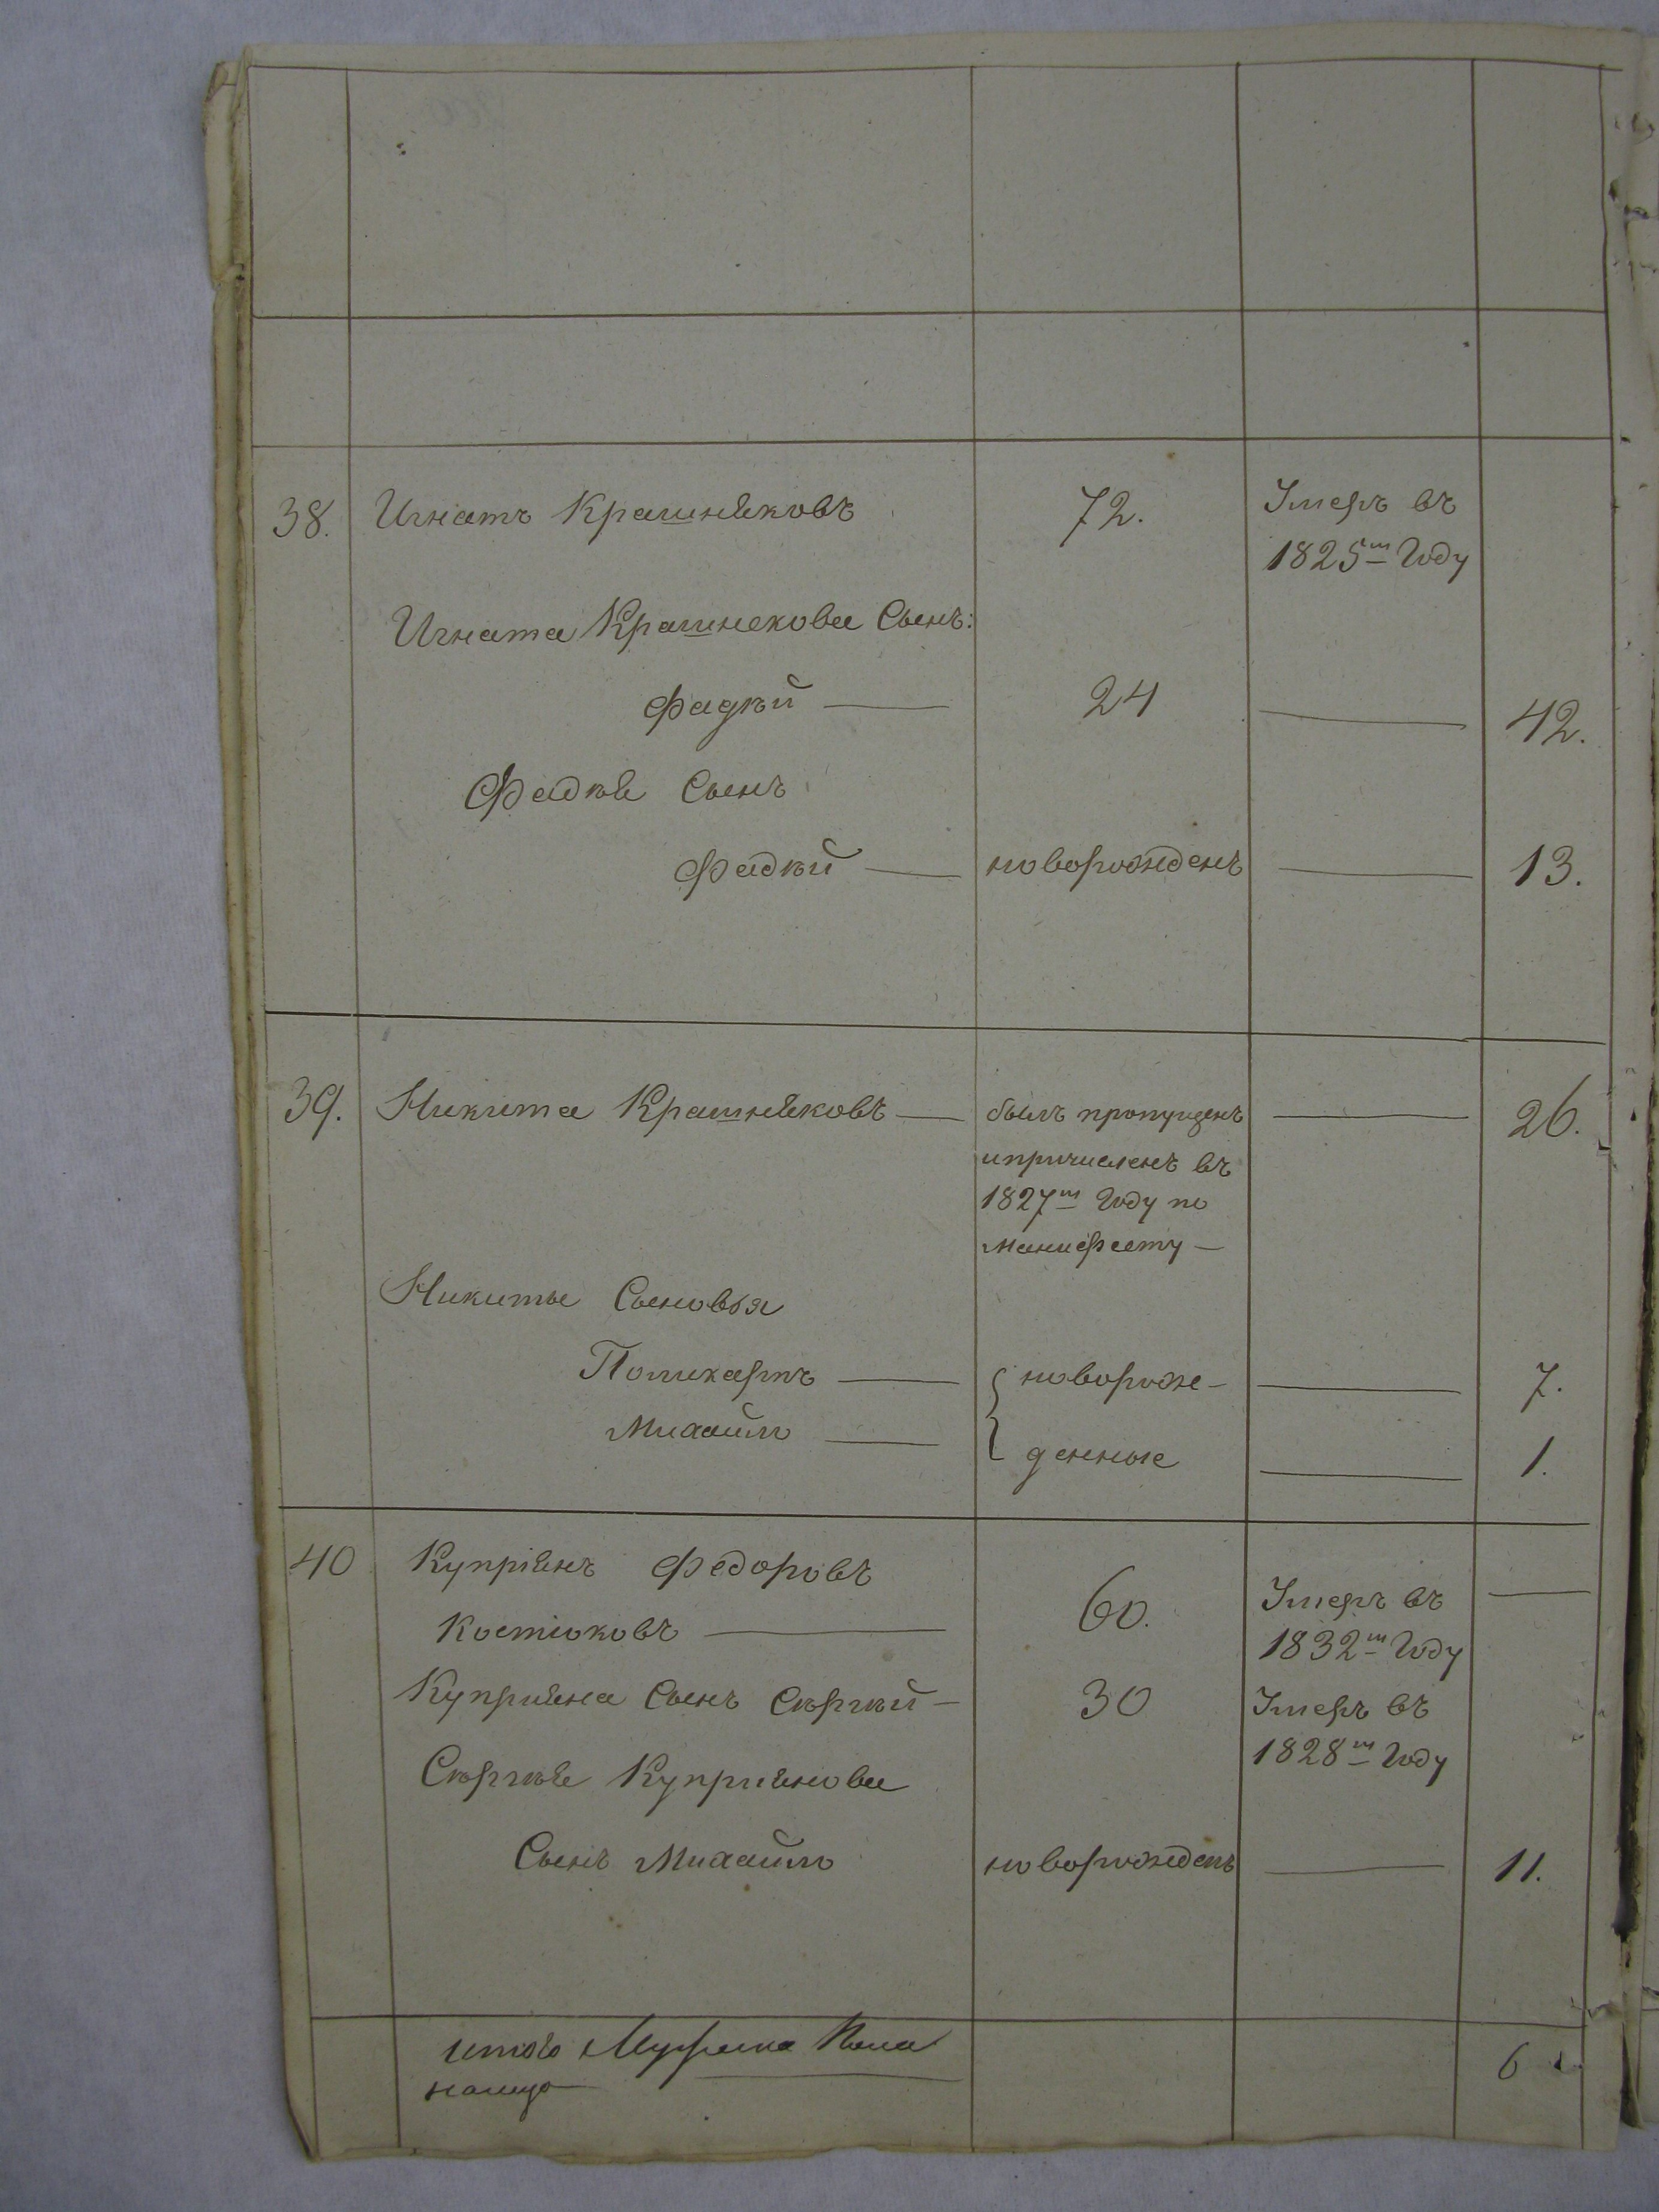 38. Игнатъ Крашняковъ 72. Умеръ въ
1825м Году
Игната Крашнекова Сынъ:
Фадѣй — 24 — 42.
Фадѣя Сынъ
Фадѣй — новорожденъ — 13.
39. Никита Крашняковъ — былъ пропущенъ — 26.
ипричисленъ въ
1827м Году по
Манифесту —
Никиты Сыновья
Поликарпъ — новорож- — 7.
Михайло — денные — 1.
40 Купріянъ Федоровъ 60. Умеръ въ —
Костюковъ — 1832м Году
Куприяна Сынъ Сѣргѣй — 30 Умеръ въ
1828м Году
Сѣргѣя Куприянова
Сынъ Михайло новорожденъ — 11.
итого Мужеска Пола 6
налицо